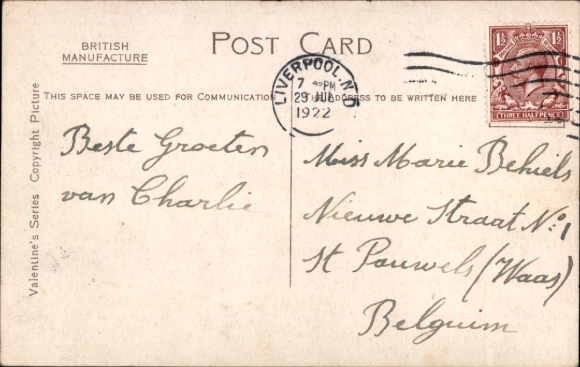 BRITISH
MANUFACTURE
POST CARD
1½ 1½
THREE HALFPENCE
LIVERPOOL. N.
7 PM
29 JUL
1922
THIS SPACE MAY BE USED FOR COMMUNICATION
ADDRESS TO BE WRITTEN HERE
Valentine's Series Copyright Picture
Beste Groeten
van Charlie
Miss Marie Behiels
Nieuwe Straat No: 1
St Pauwels (Waas)
Belguim